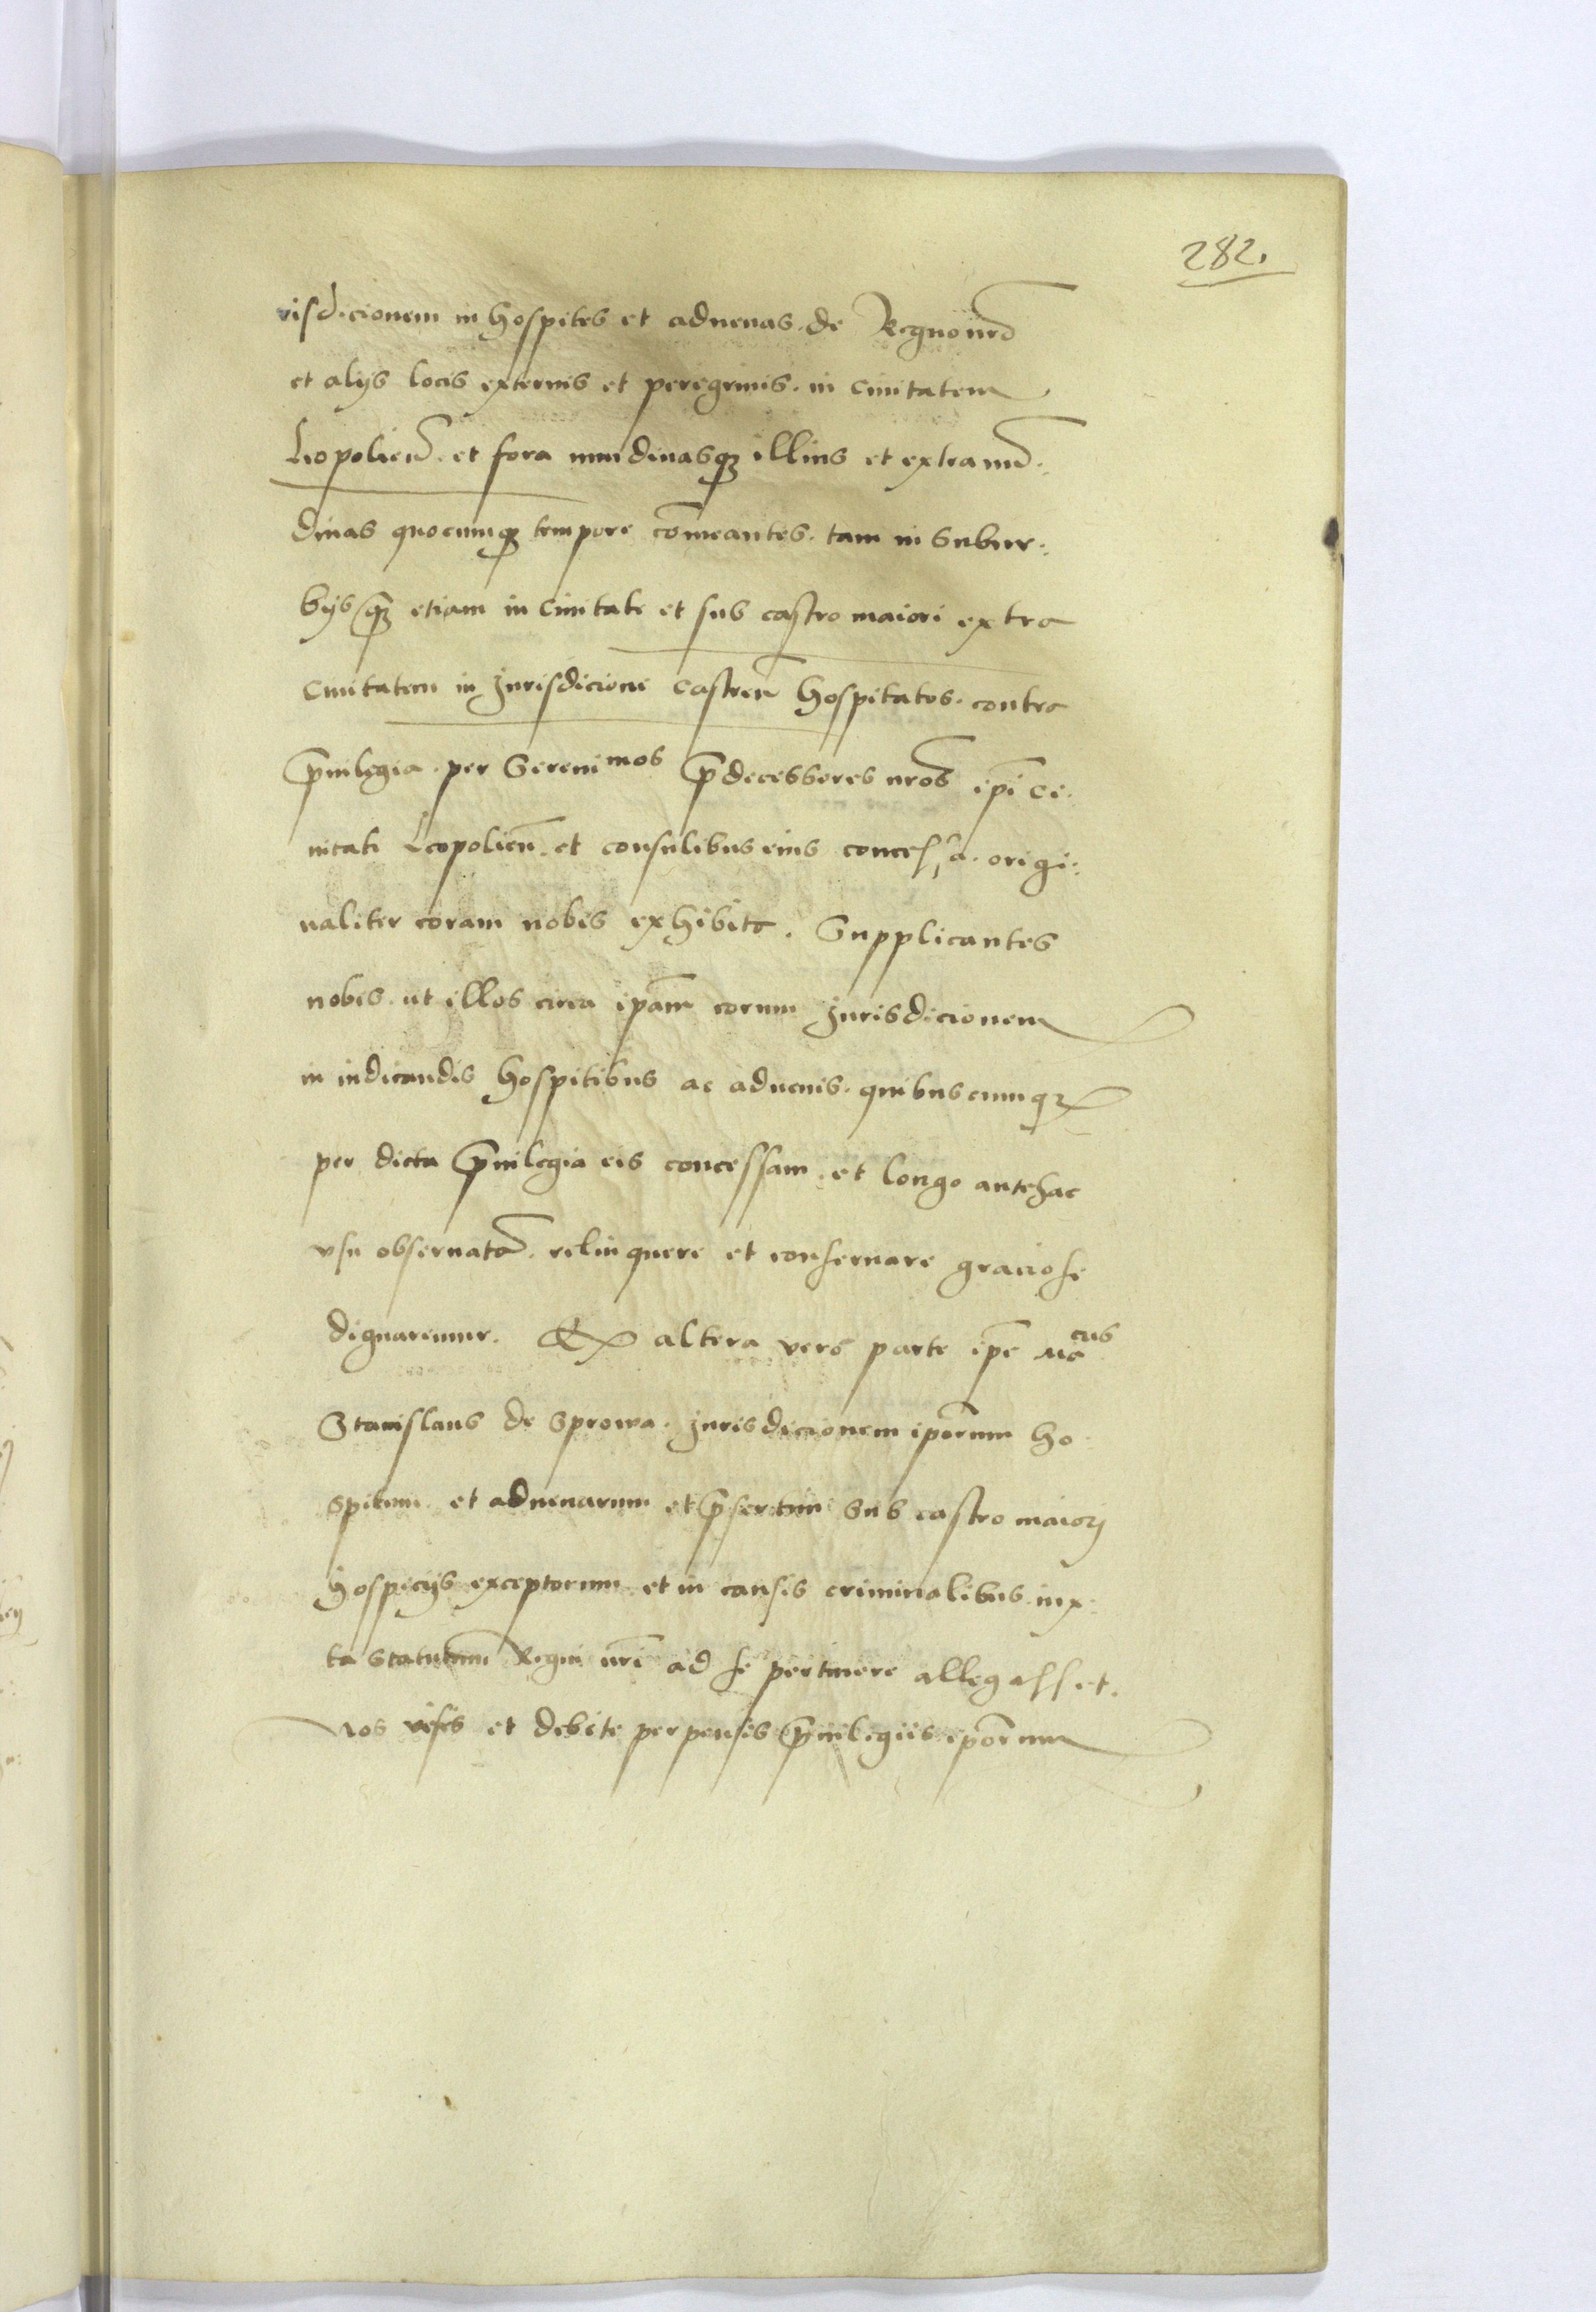 282.
risdicionem in hospites et aduenas de Regno nr̃o
et alijs locis externis et peregrinis in ciuitatem
Leopolien̄. et fora nundinasq; illius et extra nun̄:
dinas quocumq; tempore com̄eantes. tam in Subur:
bijs q̄; etiam in Ciuitate et sub castro maiori extra
Ciuitatem in Jurisdicione castren̄ hospitatos. contra
p̄uilegia per Sereni mos p̄decessores nr̃os ip̄i Ci.
uitati Leopolien̄. et consulibus eius concessa. origi:
naliter coram nobis exhibita. Supplicantes
nobis. ut illos circa ip̄am eorum Jurisdicionem
in iudicandis hospitibus ac aduenis. quibuscumq;
per dicta p̄uilegia eis concessam. et longo antehac
vsu obseruatā. relinquere et conseruare graciose
dignaremur. Ex altera vero parte ip̄e Ma cus
Stanislaus de Sprowa. Jurisdicionem ip̄orum ho
spitum et aduenarum et p̄sertim Sub castro maiorj
hospicijs exceptorum et in causis criminalibus iux:
ta Statutum Regni nr̃i ad se pertinere allegasset.
Nos visis et debite perpensis p̄uilegiis ip̄orum